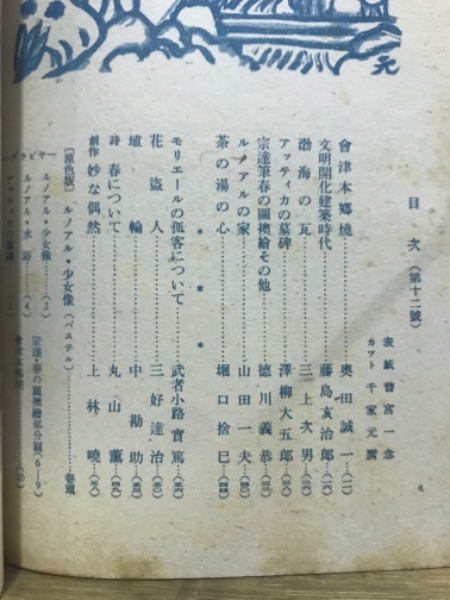 元
目次（第十二號）
表紙 曾宮一念
カット 千家元麿
會津本鄕燒……奧田誠一…（一）
文明開化建築時代……藤島亥治郎…
渤海の瓦……三上次男…
アッティカの墓碑……澤柳大五郎…
宗達筆春の圖襖繪その他……德川義恭…
ルノアルの家……山田一夫…
茶の湯の心……堀口捨巳…
＊ ＊ ＊
モリエールの孤客について……武者小路實篤…
花盜人……三好達治…
埴輪……中勘助…
詩 春について……丸山薰…
創作 妙な偶然……上林曉…
〔原色版〕 ルノアル・少女像（パステル）……卷頭
ーグラビヤー
ルノアル・少女像……（3）
ルノアル・水浴……（4）
宗達・春の圖襖繪部分圖（6—9）